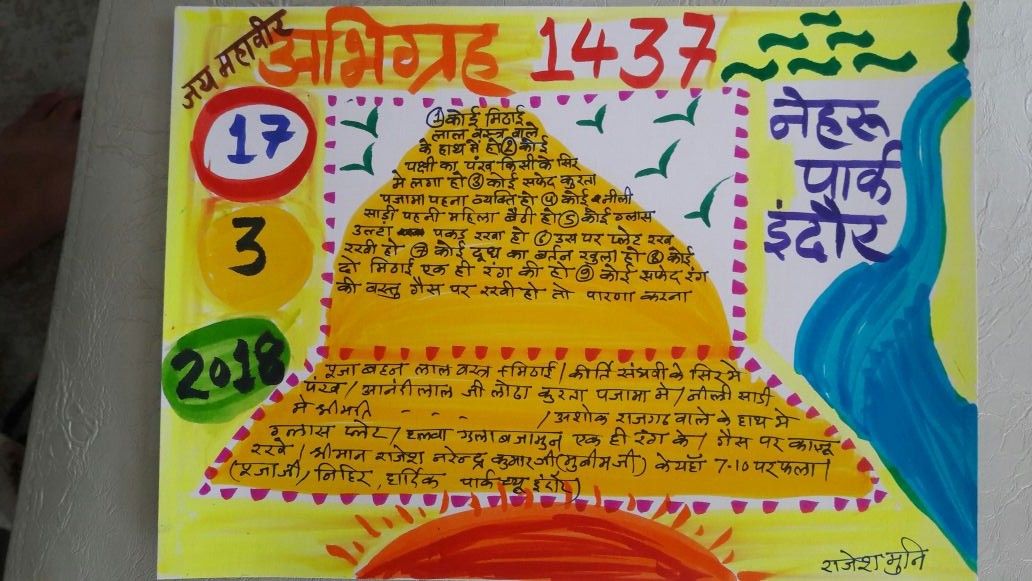 जय महावीर
अभिग्रह 1437
नेहरू
पार्क
इंदौर
17
3
2018
① कोई मिठाई
लाल वस्त्र वाले
के हाथ में हो ② कोई
पक्षी का पंख किसी के सिर
मे लगा हो ③ कोई सफेद कुरता
पजामा पहना व्यक्ति हो ④ कोई नीली
साड़ी पहनी महिला बैठी हो ⑤ कोई ग्लास
उल्टा पकड़ रखा हो ⑥ उस पर प्लेट रख
रखी हो ⑦ कोई दूध का बर्तन खुला हो ⑧ कोई
दो मिठाई एक ही रंग की हो ⑨ कोई सफेद रंग
की वस्तु गैस पर रखी हो तो पारणा करना
पूजा बहन लाल वस्त्र + मिठाई / कीर्ति संघवी के सिर मे
पंख / आनंदीलाल जी लोढा कुरता पजामा मे / नीली साडी
मे श्रीमति - - - / अशोक राजगढ वाले के हाथ मे
ग्लास प्लेट / हलवा गुलाबजामुन एक ही रंग के / गैस पर काजू
रखे / श्रीमान राजेश नरेन्द्र कुमार जी (मुनीमजी) के यहाँ 7-10 पर फला /
(पूजाजी, निहिर, हार्दिक पार्क व्यू इंदौर)
राजेश मुनि